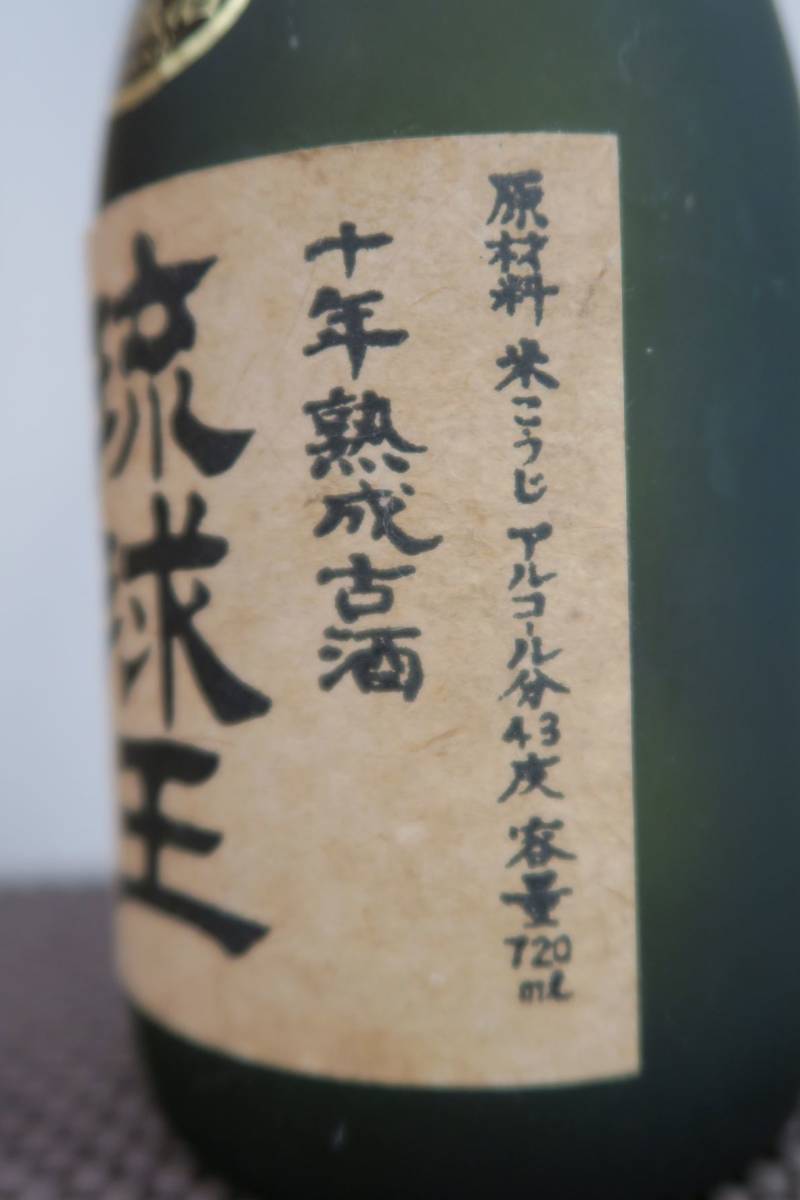 原材料 米こうじ アルコール分43度 容量720ml
十年熟成古酒
琉球王